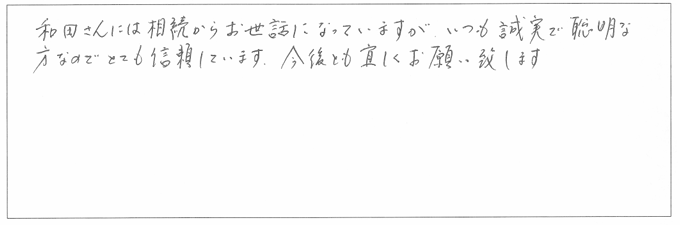 和田さんには相続からお世話になっていますが、いつも誠実で聡明な
方なのでとても信頼しています。今後とも宜しくお願い致します